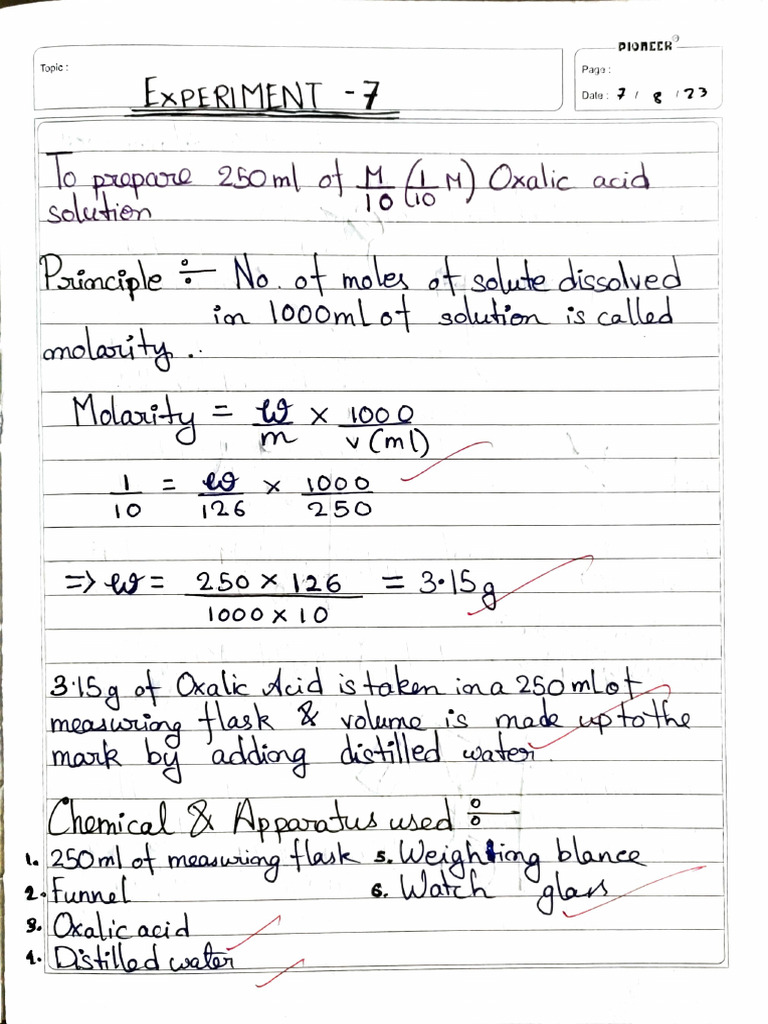 PIONEER
Topic :
EXPERIMENT - 7
Page :
Date : 7 / 8 / 23
To prepare 250ml of M/10 (1/10 M) Oxalic acid
solution
Principle ÷ No. of moles of solute dissolved
in 1000ml of solution is called
molarity.
Molarity = w/m × 1000/v(ml)
1/10 = w/126 × 1000/250
=> w = 250 × 126 / 1000 × 10 = 3.15g
3.15g of Oxalic Acid is taken in a 250ml of
measuring flask & volume is made up to the
mark by adding distilled water.
Chemical & Apparatus used ÷
1. 250ml of measuring flask 5. Weighting blance
2. Funnel 6. Watch glass
3. Oxalic acid
4. Distilled water